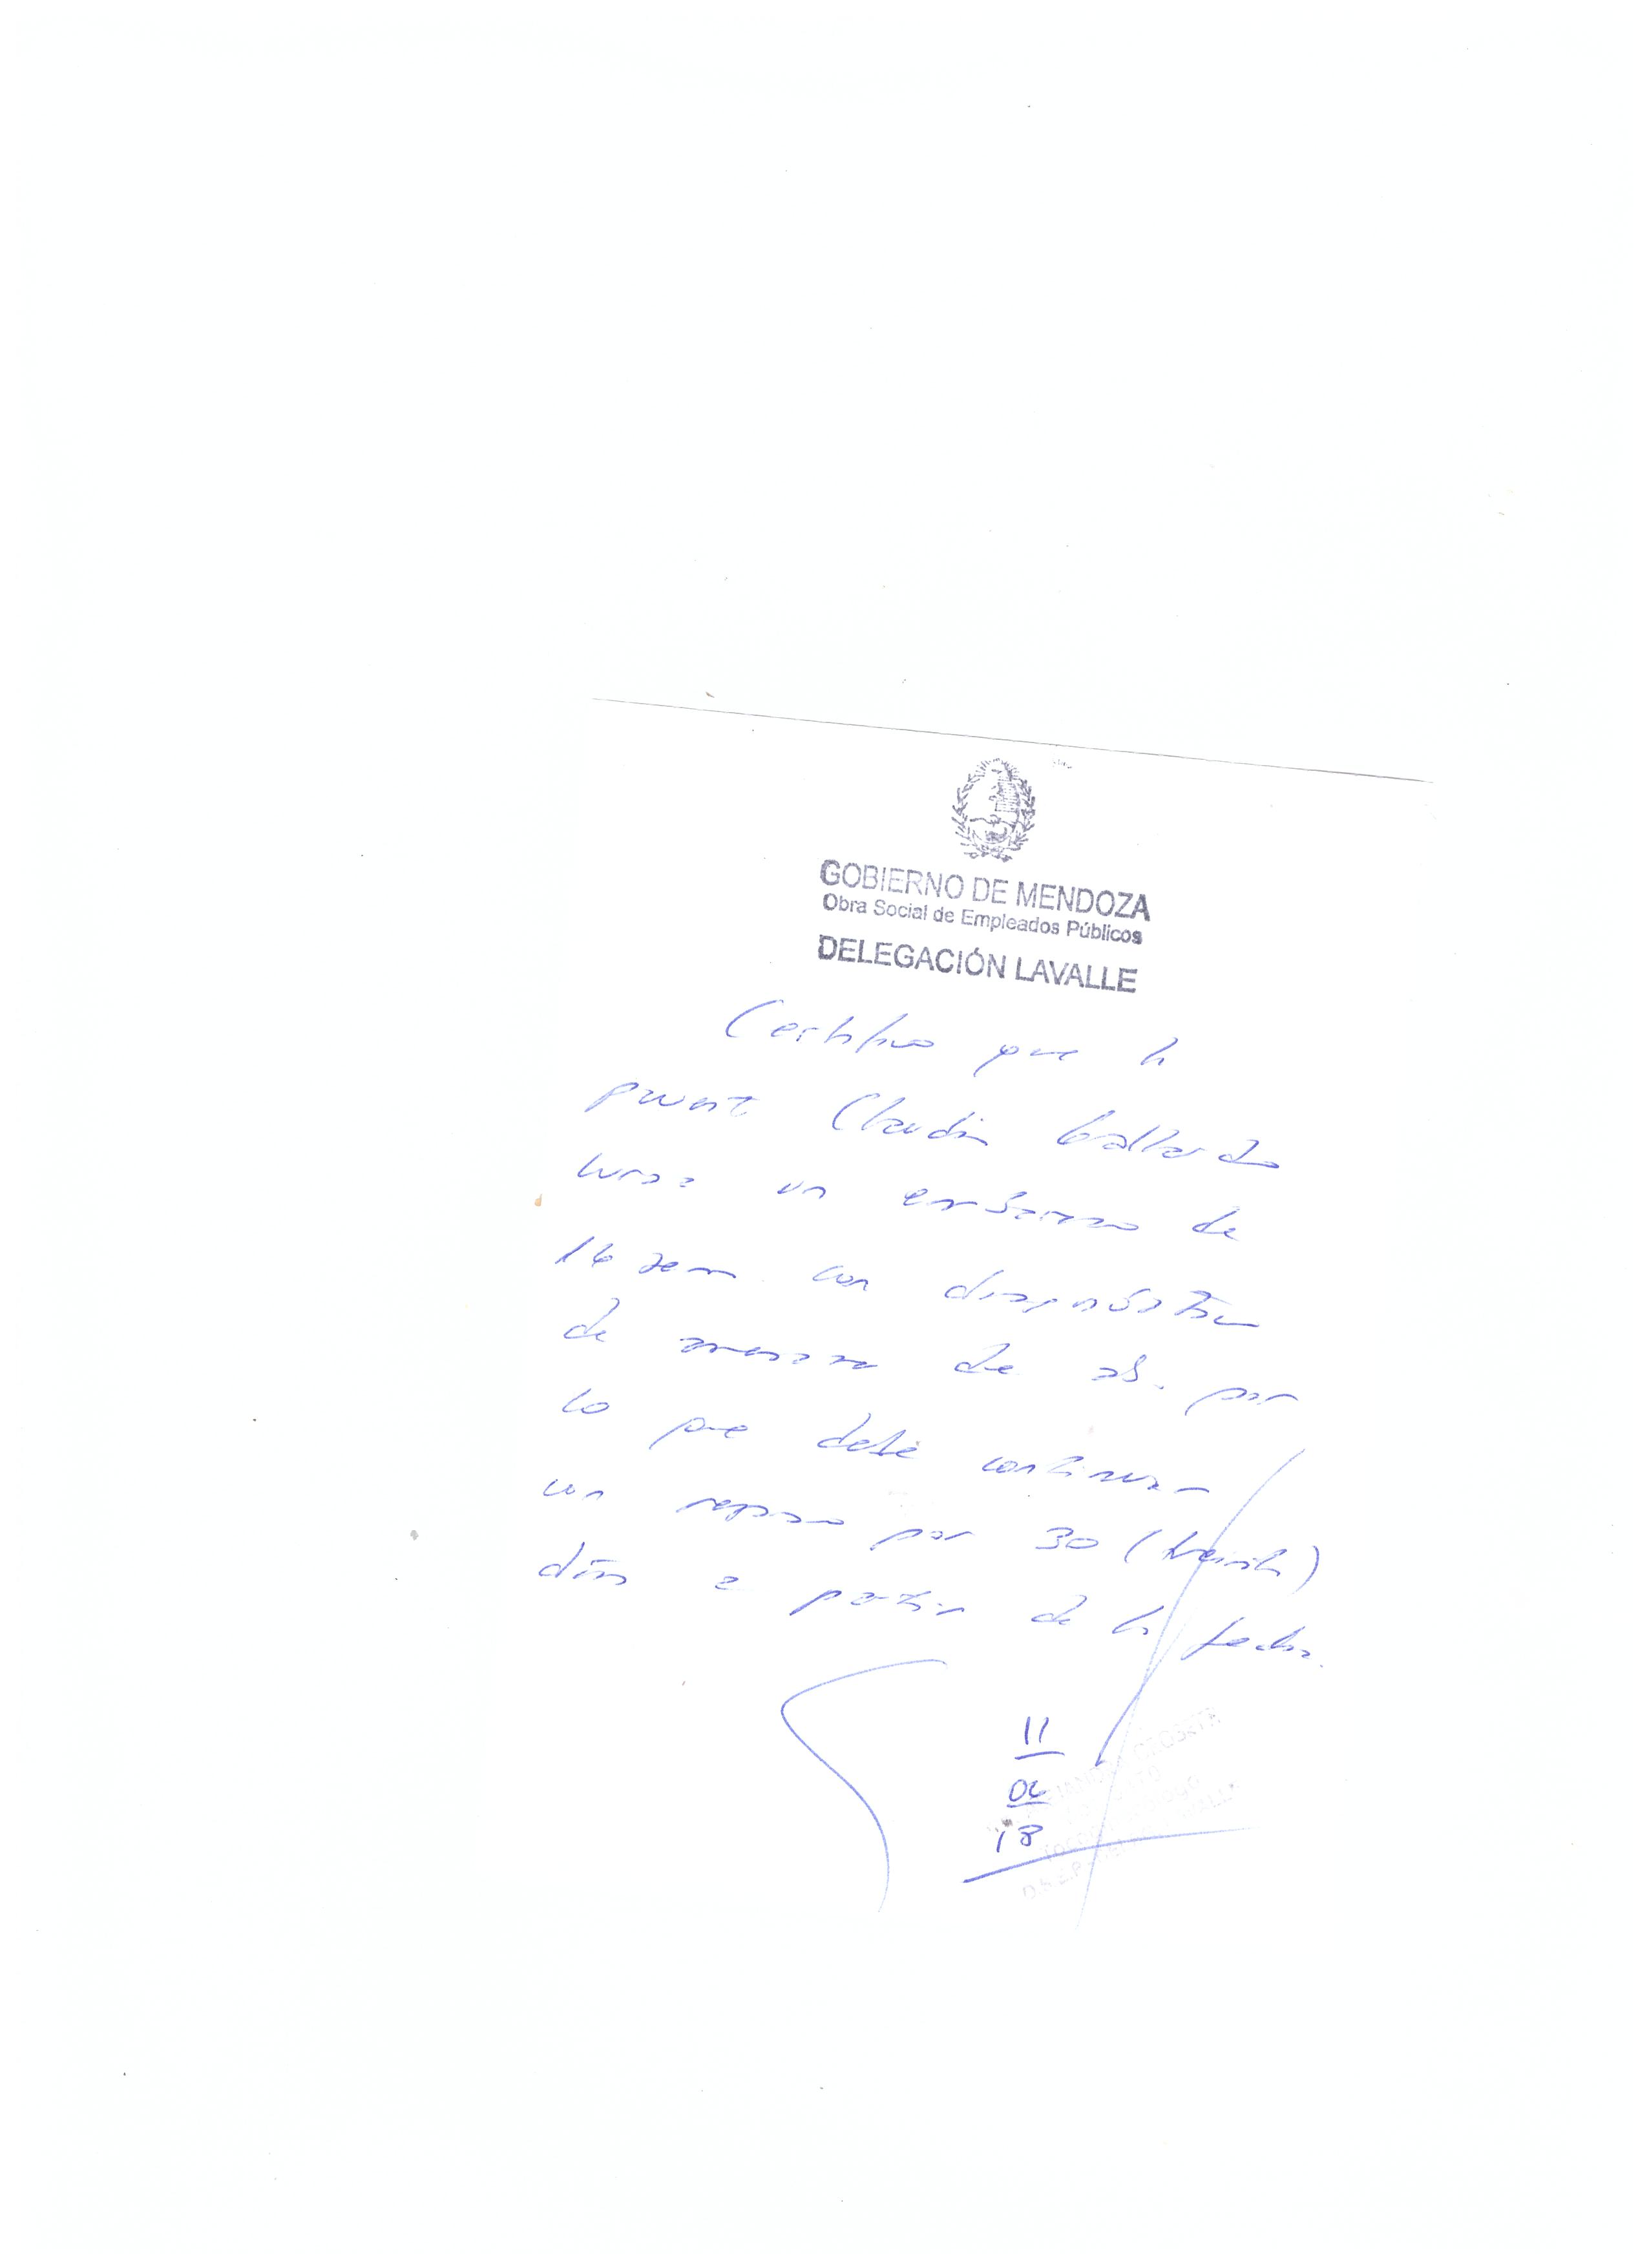 GOBIERNO DE MENDOZA
Obra Social de Empleados Públicos
DELEGACIÓN LAVALLE
Certifico que la
Claudia Gallardo
cursa un embarazo de
sem con diagnóstico
de amenaza de ab. por
lo que debe continuar
con reposo por 30 (treinta)
días a partir de la fecha.
11
06
18